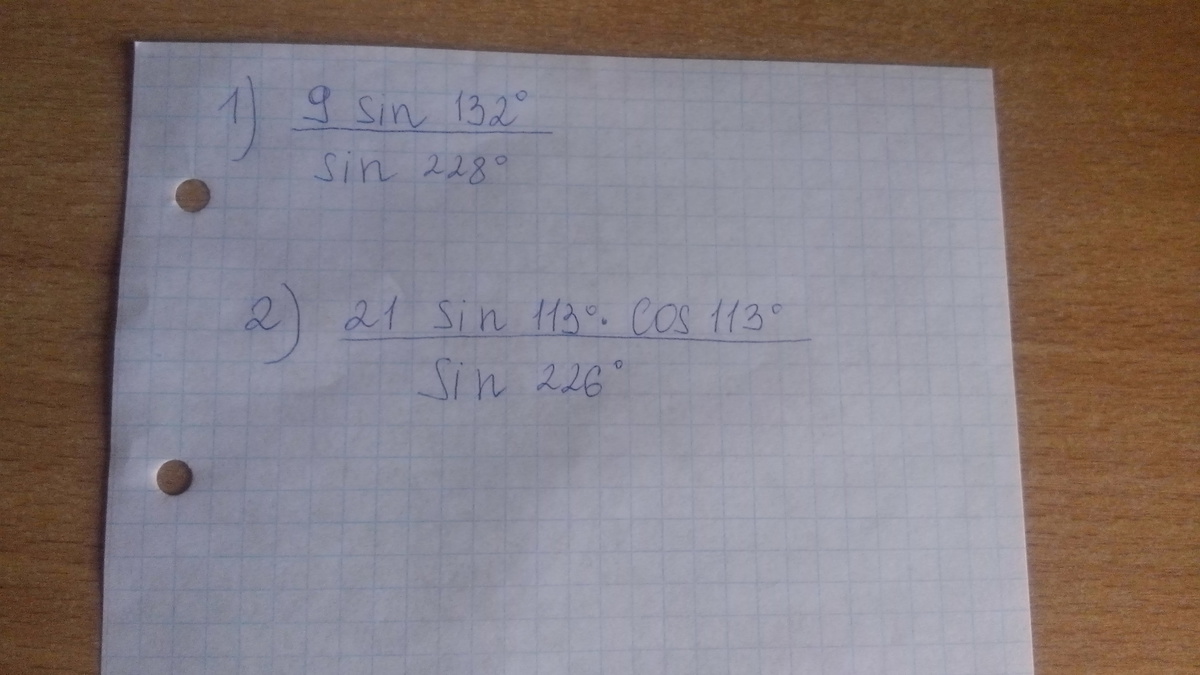 1) 9 sin 132°
sin 228°
2) 21 sin 113° · cos 113°
sin 226°